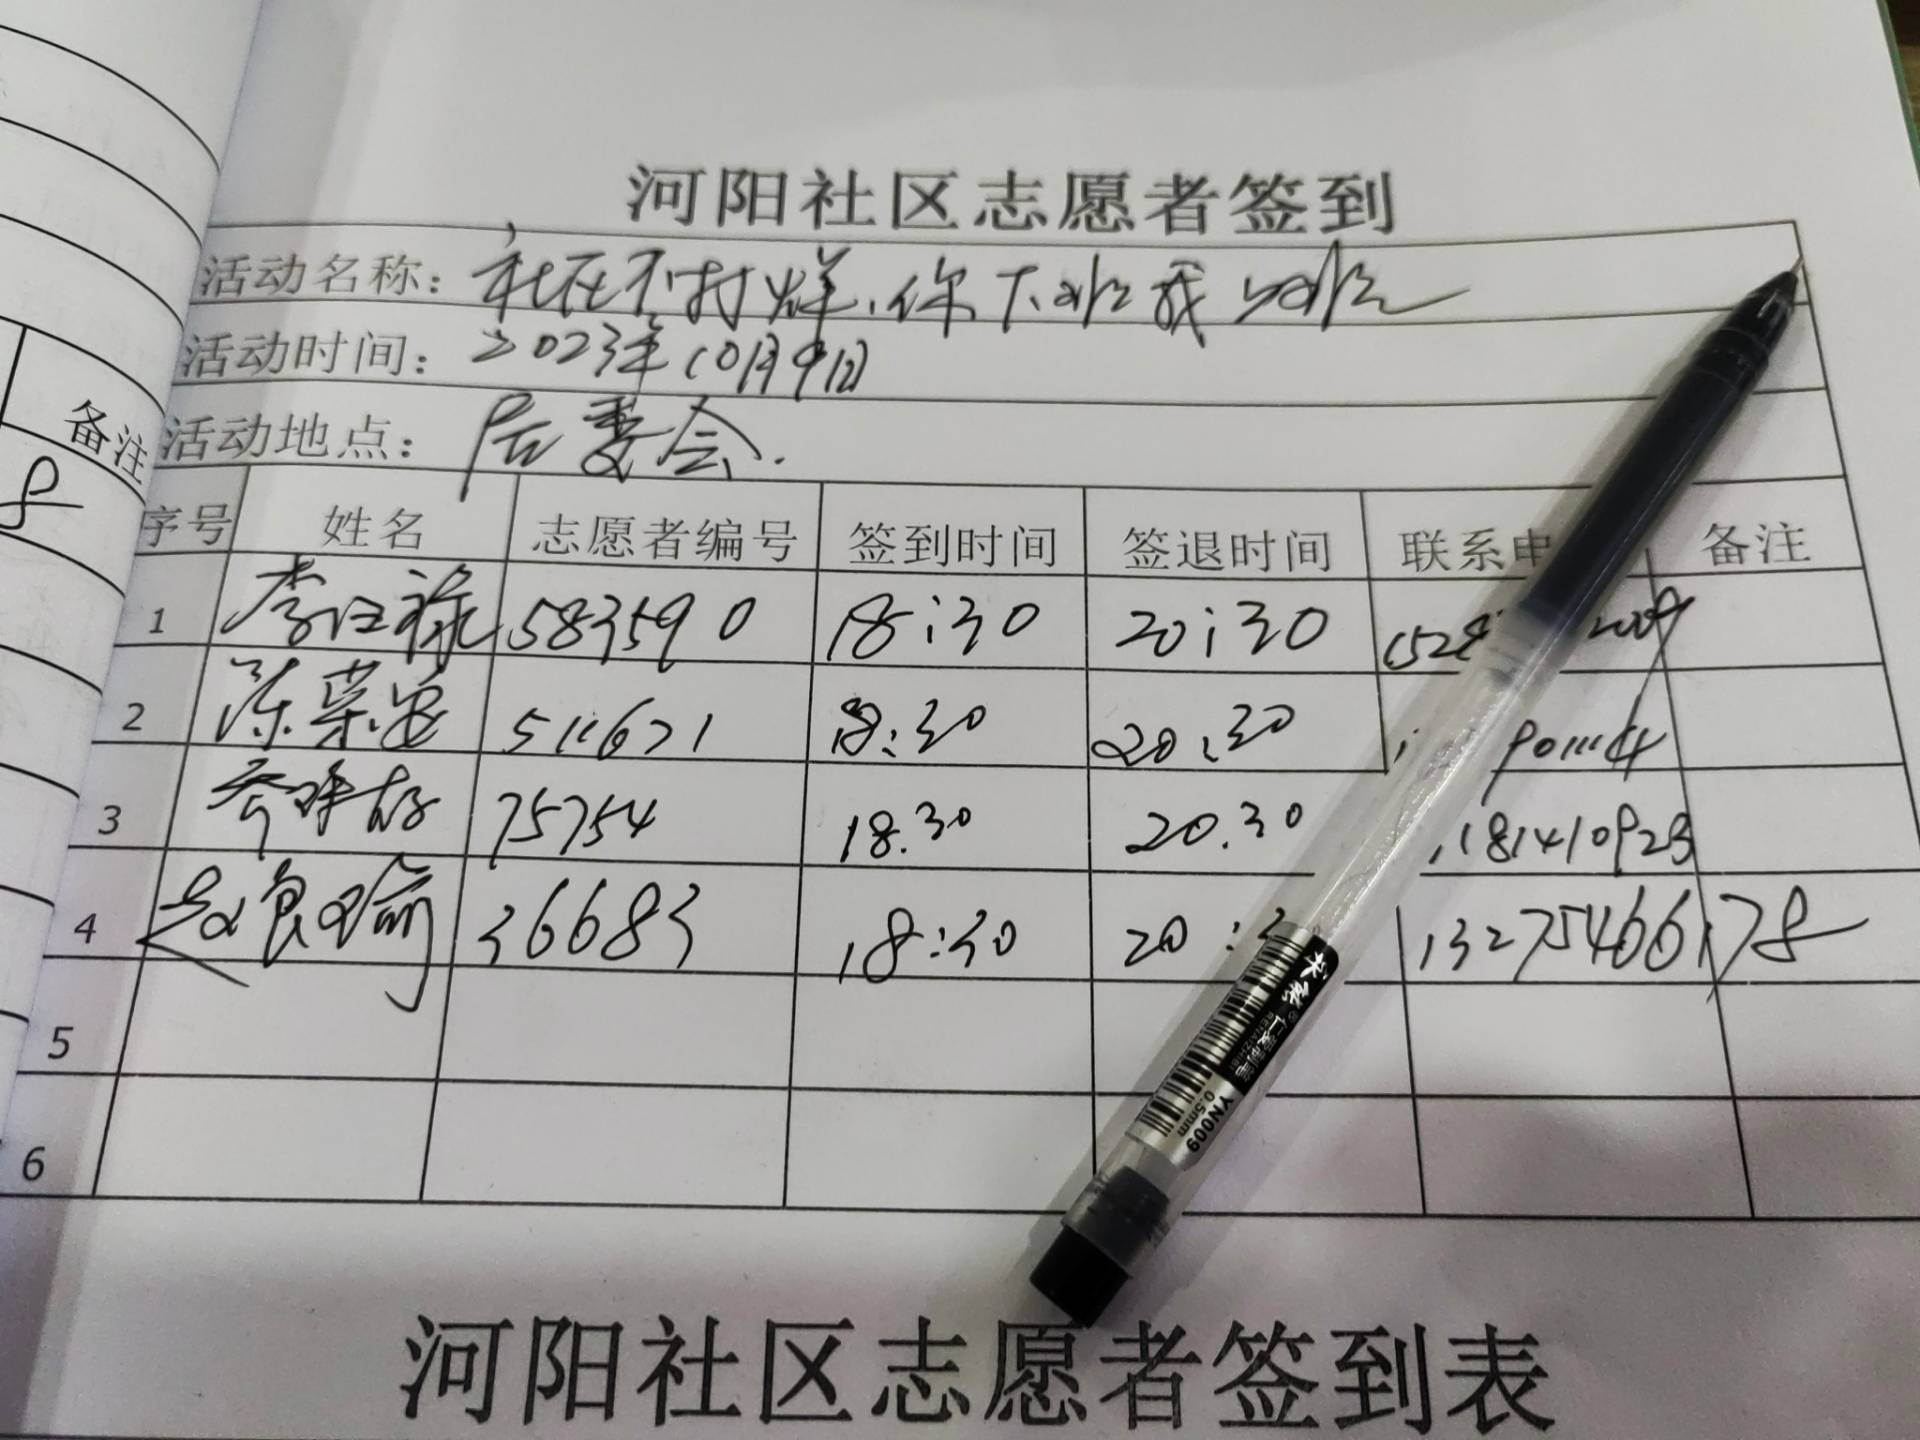 河阳社区志愿者签到
活动名称: 社区不打烊.你下班我上班
活动时间: 2023年10月9日
活动地点: 居委会.
备注
序号 姓名 志愿者编号 签到时间 签退时间 联系电 备注
8
1 李江禄 583590 18:30 20:30
2 陈菜 511671 18:30 20:30
3 75754 18.30 20.30 181410923
4 赵良瑜 36683 18:30 20 : 13275466178
5
6
仁爱制笔
RENAIZHIBI
YN009
0.5mm
河阳社区志愿者签到表